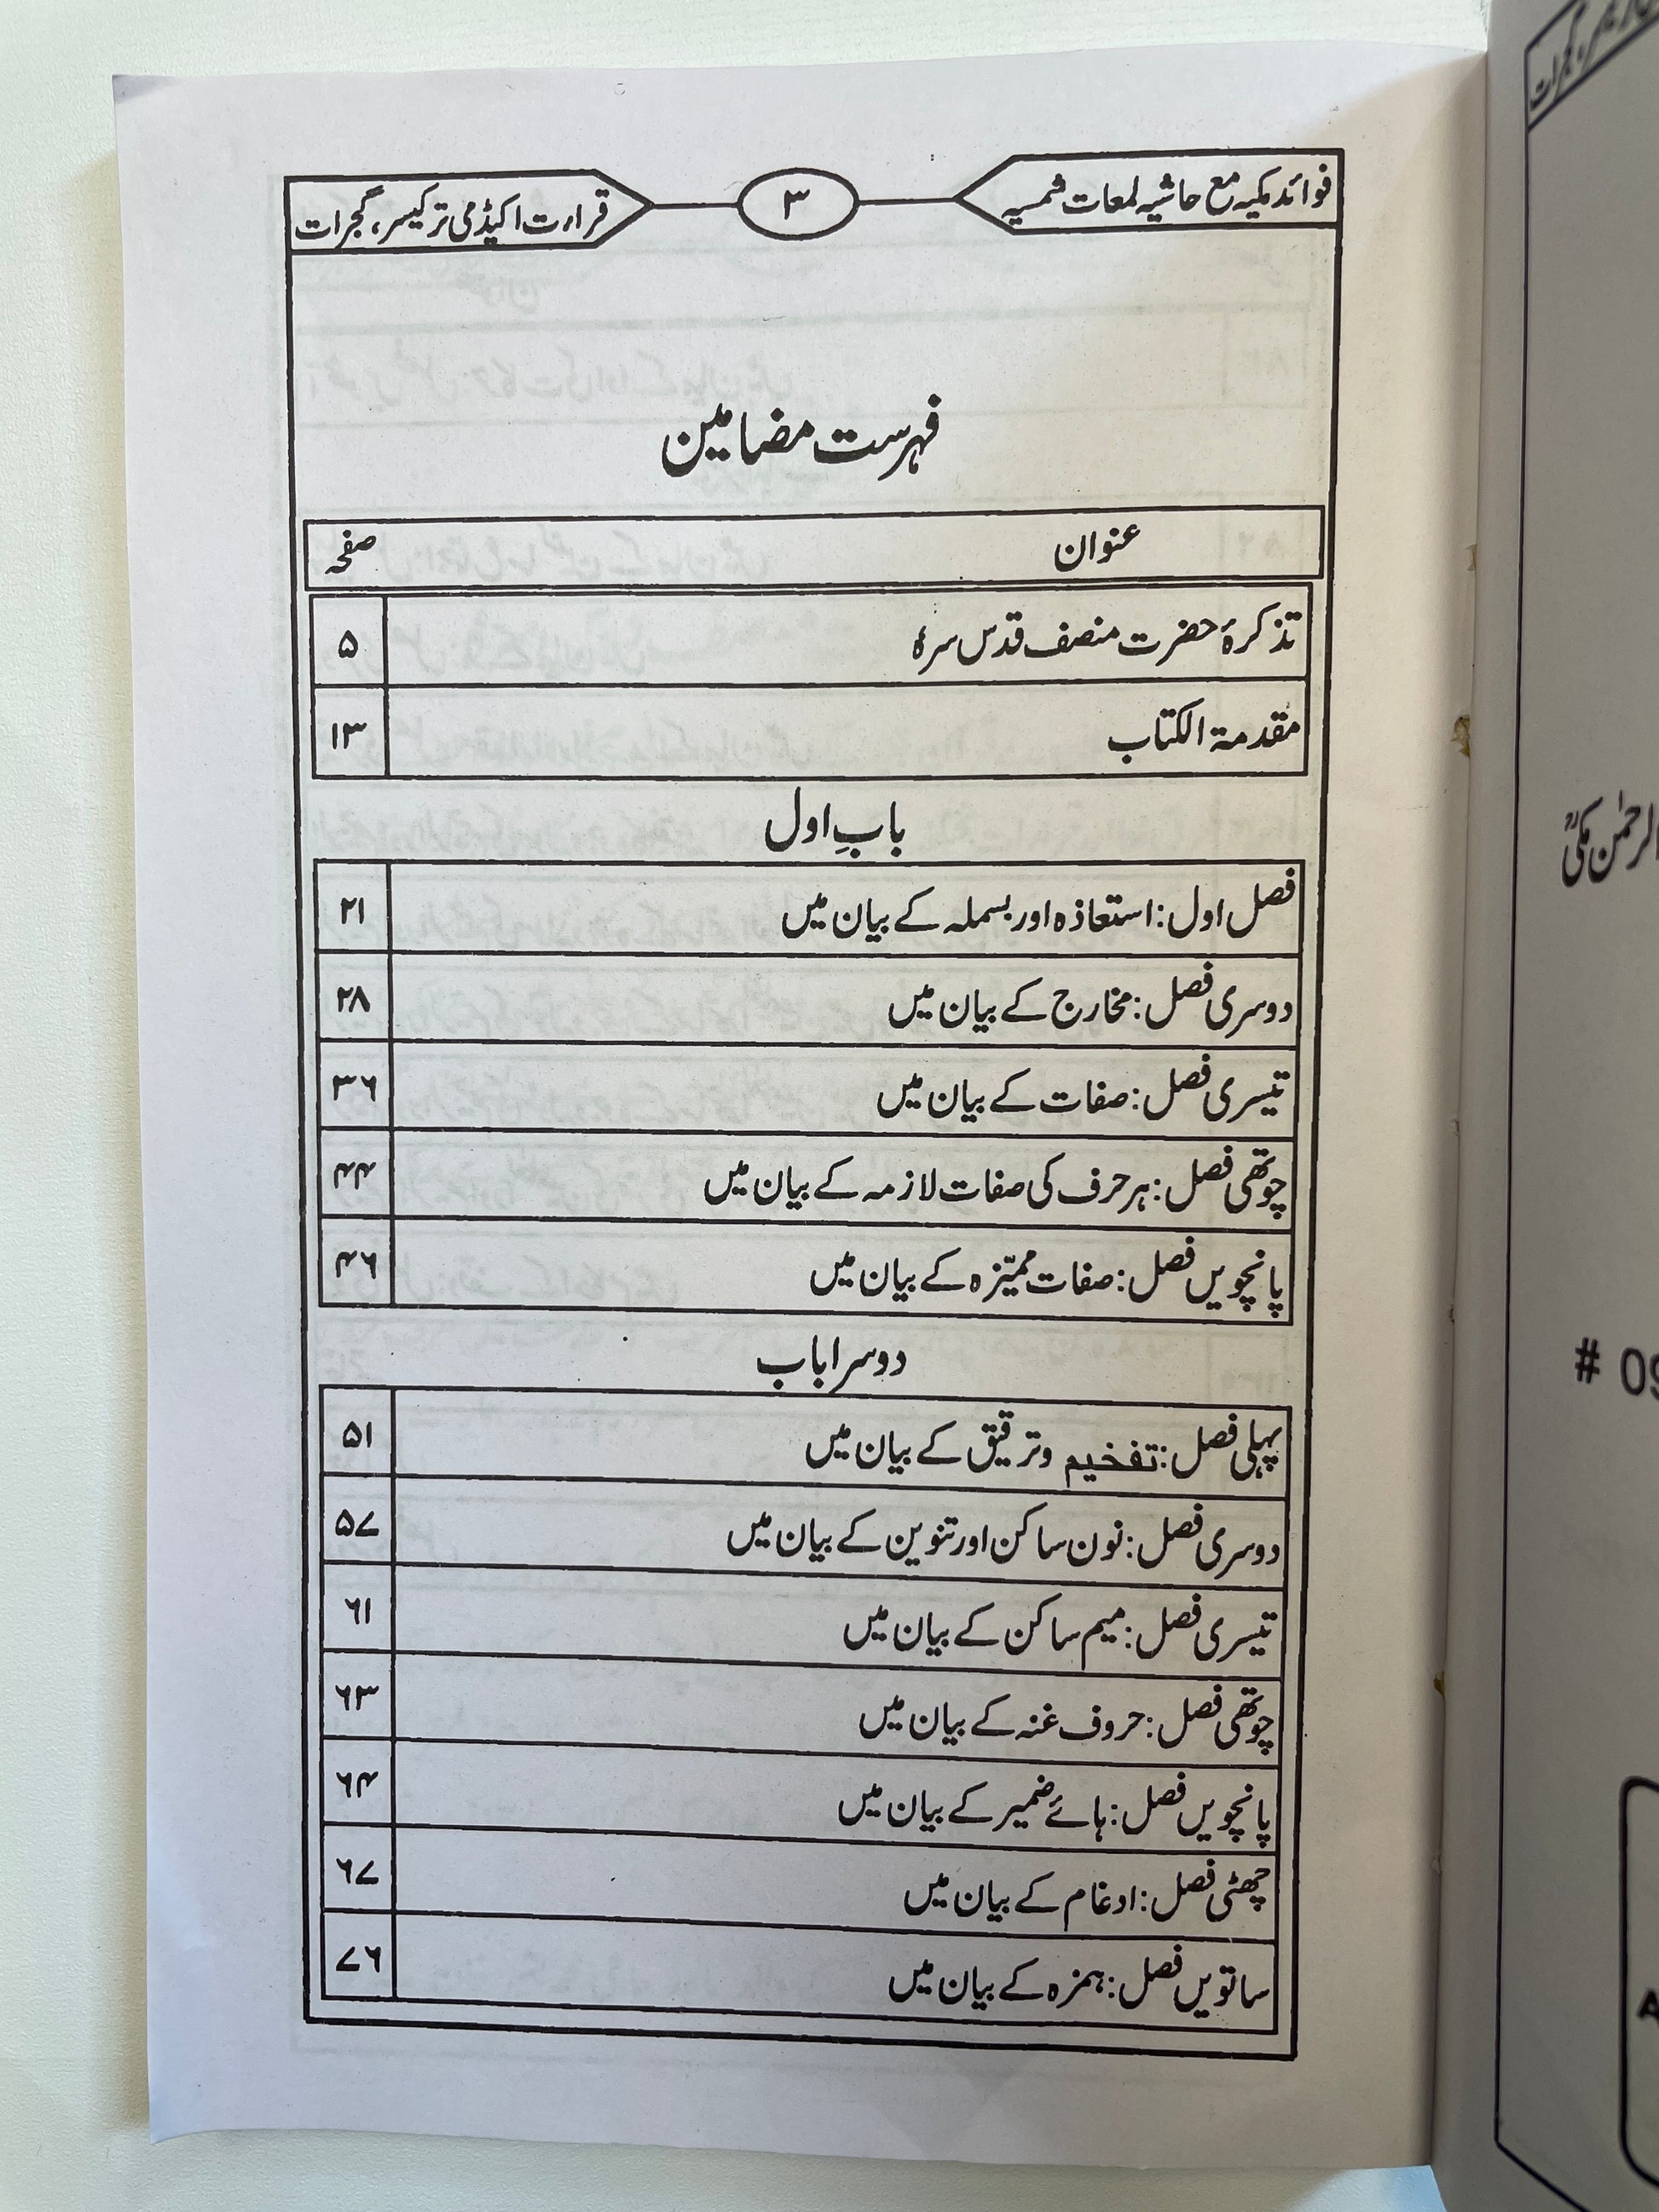 فوائد مکیہ مع حاشیہ لمعات شمسیہ
۳
قرارت اکیڈمی ترکیسر، گجرات
فہرست مضامین
عنوان صفحہ
تذکرۂ حضرت منصف قدس سرہٗ ۵
مقدمۃ الکتاب ۱۳
بابِ اول
فصل اول: استعاذہ اور بسملہ کے بیان میں ۲۱
دوسری فصل: مخارج کے بیان میں ۲۸
تیسری فصل: صفات کے بیان میں ۳۶
چوتھی فصل: ہر حرف کی صفات لازمہ کے بیان میں ۴۴
پانچویں فصل: صفات ممیّزہ کے بیان میں ۴۶
دوسرا باب
پہلی فصل: تفخیم وترقیق کے بیان میں ۵۱
دوسری فصل: نون ساکن اور تنوین کے بیان میں ۵۷
تیسری فصل: میم ساکن کے بیان میں ۶۱
چوتھی فصل: حروف غنہ کے بیان میں ۶۳
پانچویں فصل: ہائے ضمیر کے بیان میں ۶۴
چھٹی فصل: ادغام کے بیان میں ۶۷
ساتویں فصل: ہمزہ کے بیان میں ۷۶
الرحمٰن مکیؒ
# 09